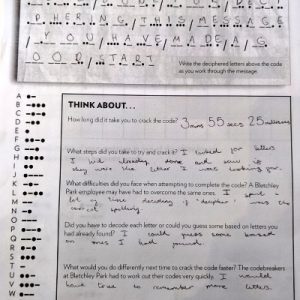 P H E R I N G / T H I S / M E S S A G E
/ Y O U / H A V E / M A D E / A / G
O O D / S T A R T
Write the deciphered letters above the code
as you work through the message.
A
B
C
D
E
F
G
H
I
J
K
L
M
N
O
P
Q
R
S
T
U
V
W
THINK ABOUT...
How long did it take you to crack the code? 3 mins 55 secs 25 
What steps did you take to try and crack it? I looked for letters
I had already done and saw if
they were the letter I was looking for.
What difficulties did you face when attempting to complete the code? A Bletchley
Park employee may have had to overcome the same ones. I spent a
lot of time deciding if 'decipher' was the
correct spelling
Did you have to decode each letter or could you guess some based on letters you
had already found? I could guess some based
on ones I had found.
What would you do differently next time to crack the code faster? The codebreakers
at Bletchley Park had to work out their codes very quickly. I would
have to remember more letters.